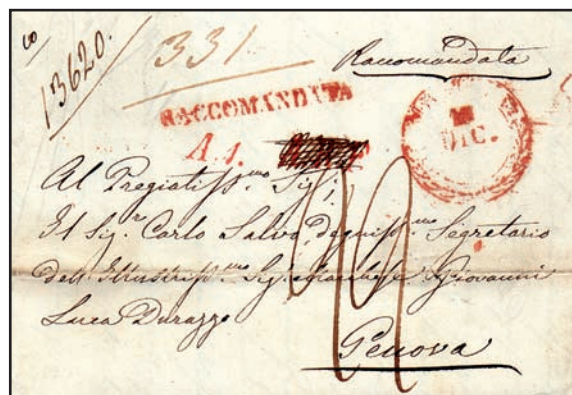 13620.
331
Raccomandata
RACCOMANDATA
A. 1.
DIC.
Al Pregiatiss.mo Sig.
Il Sig.re Carlo Salvo, degniss.mo Segretario
dell Illustriss.mo Sig. Marchese Giovanni
Luca Durazzo
Genova